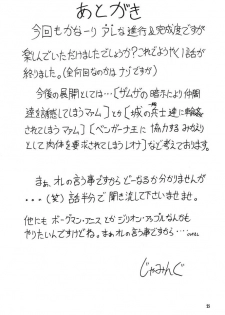 あとがき
今回もかなーり ラフな進行&完成度ですが
楽しんでいただけましたでしょうか?これでようやく1話が
終りました。(全何回なのかはナゾですが)
今後の展開としては…[ザムザの暗示により仲間
達を誘惑してしまうマァム]と[城の兵士達に輪姦
されてしまうマァム][ベンガーナ王に協力するみかえり
として肉体を要求されてしまうレオナ]など考えております。
まぁ、オレの言う事ですからどーなるか分かりませんが
・・・(笑)話半分で聞き流して下さいませ。
他にもボーグマン・アニスとかジリオン・アップルなんかも
やりたいんですけどね。まぁオレの言う事ですから…
じゃみんぐ